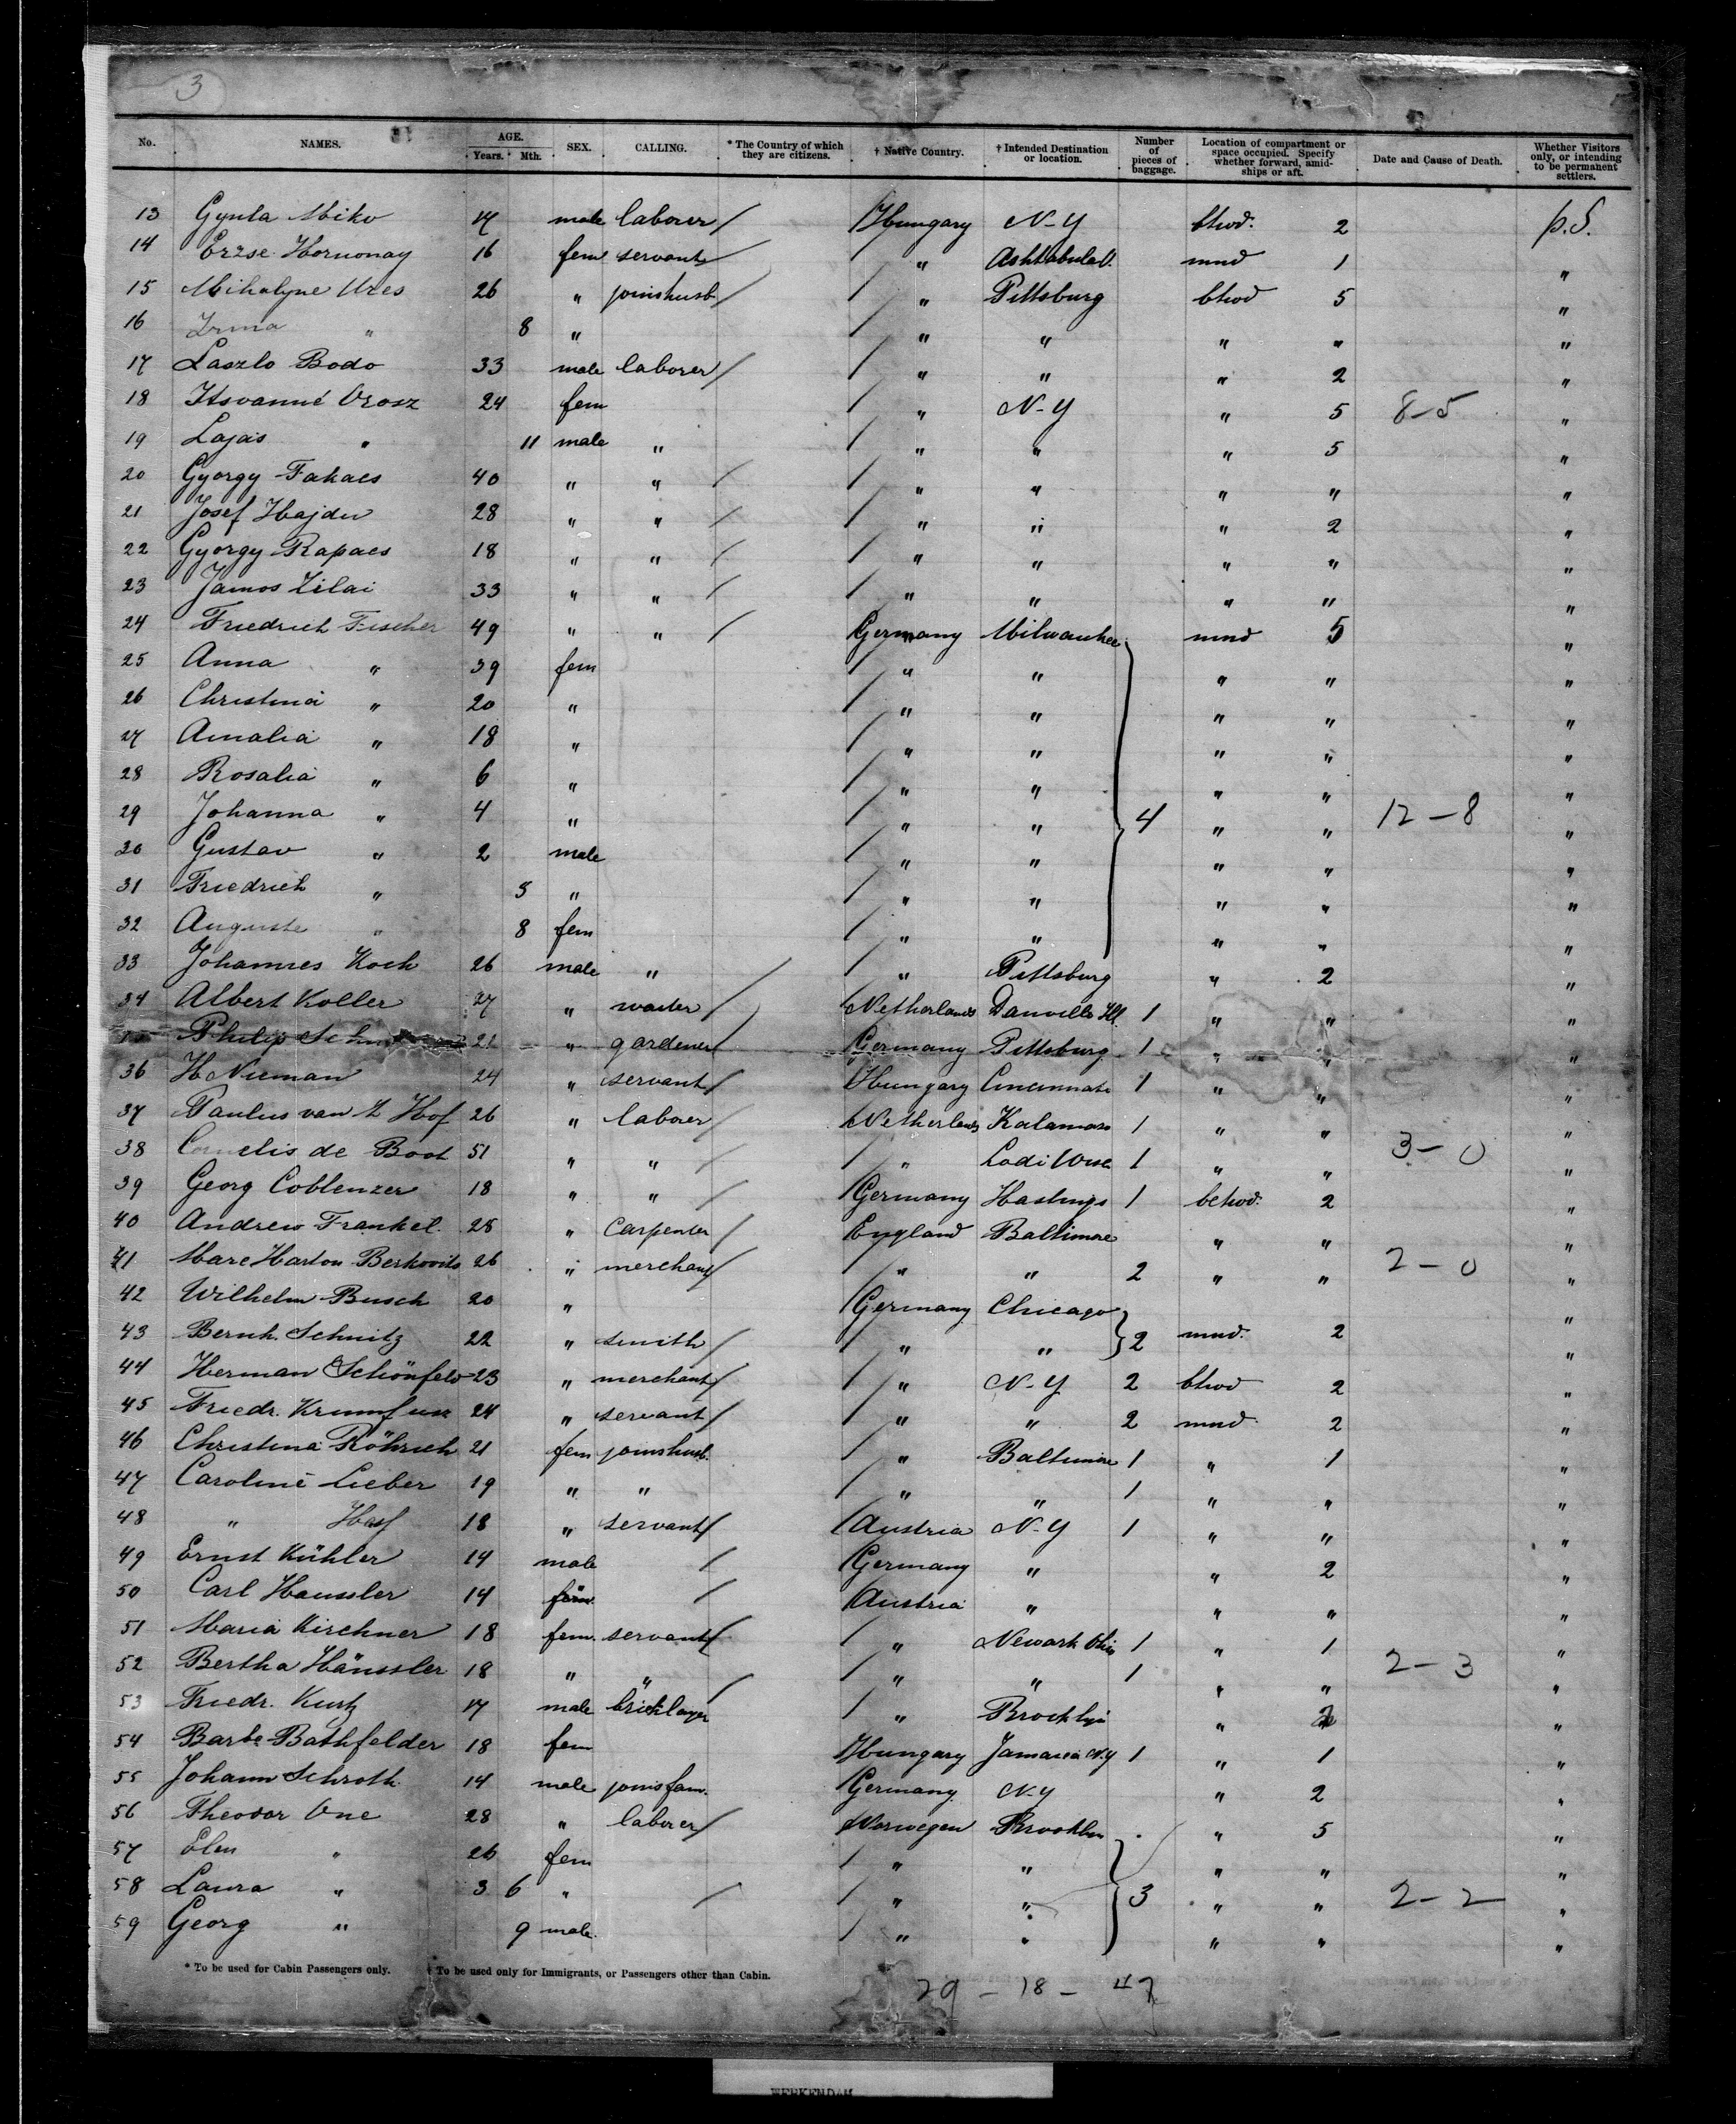 3
No. NAMES. AGE. Years. Mth. SEX. CALLING. * The Country of which they are citizens. † Native Country. † Intended Destination or location. Number of pieces of baggage. Location of compartment or space occupied. Specify whether forward, amidships or aft. Date and Cause of Death. Whether Visitors only, or intending to be permanent settlers.
13 Gyula Miko 17 male laborer / / Hungary N-Y btwd. 2 p.S.
14 Erzse Hornonay 16 fem servant / / " Ashtabula O. mnd 1 "
15 Mihalyne Ures 26 " joinshusb. / / " Pittsburg btwd 5 "
16 Irma " 8 " / " " " " "
17 Laszlo Bodo 33 male laborer / / " " " 2 "
18 Itsvanné Orosz 24 fem / " N-Y " 5 8-5 "
19 Lajas " 11 male " / " " " 5 "
20 Gyorgy Takacs 40 " " / / " " " " "
21 Josef Hajdu 28 " " / / " " " 2 "
22 Gyorgy Rapacs 18 " " / / " " " " "
23 Jamos Zilai 33 " " / / " " " " "
24 Friedrich Fischer 49 " " / / Germany Milwaukee mnd 5 "
25 Anna " 39 fem / " " " " "
26 Christina " 20 " / " " " " "
27 Amalia " 18 " / " " " " "
28 Rosalia " 6 " / " " " " "
29 Johanna " 4 " / " " 4 " " 12-8 "
30 Gustav " 2 male / " " " " "
31 Friedrich " 3 " / " " " " "
32 Auguste " 8 fem / " " " " "
33 Johannes Koch 26 male " / / " Pittsburg " 2 "
34 Albert Koller 27 " waiter / / Netherlands Danville Ill. 1 " " "
Philip 21 " gardener / / Germany Pittsburg 1 " " "
36 H Nieman 24 " servant / / Hungary Cincinnati 1 " " "
37 Paulus van t Hof 26 " laborer / / Netherlands Kalamazo 1 " " "
38 Cornelis de Boot 51 " " / / " Lodi Wisc 1 " " 3-0 "
39 Georg Coblenzer 18 " " / / Germany Hastings 1 betwd. 2 "
40 Andrew Frankel 28 " carpenter / / England Baltimore " " "
41 Marc Harton Berkovits 26 " merchant / / " " 2 " " 2-0 "
42 Wilhelm Busch 20 " / Germany Chicago "
43 Bernh. Schnitz 22 " smith / / " " 2 mnd. 2 "
44 Herman Schönfeld 23 " merchant / / " N-Y 2 btwd 2 "
45 Friedr. 24 " servant / / " " 2 mnd 2 "
46 Christina Röhrich 21 fem joinshusb. / " Baltimore 1 " 1 "
47 Caroline Lieber 19 " " / " " 1 " " "
48 " 18 " servant / / Austria N-Y 1 " " "
49 Ernst Kühler 14 male / / Germany " " 2 "
50 Carl Haussler 14 / / Austria " " " "
51 Maria Kirchner 18 fem. servant / / " Newark Ohio 1 " 1 "
52 Bertha Hänssler 18 " " / / " " 1 " " 2-3 "
53 Friedr. Kurtz 17 male bricklayer / " Brooklyn " 2 "
54 Barbe Bathfelder 18 fem / Hungary Jamaica N.Y 1 " 1 "
55 Johann Schroth 14 male joins fam. / Germany N-Y " 2 "
56 Theodor One 28 " laborer / / Norwegen Brooklyn " 5 "
57 Elen " 26 fem / " " " " "
58 Laura " 3 6 " / / " " 3 " " 2-2 "
59 Georg " 9 male. / " " " " "
* To be used for Cabin Passengers only. † To be used only for Immigrants, or Passengers other than Cabin.
29 - 18 - 47
WERKENDAM